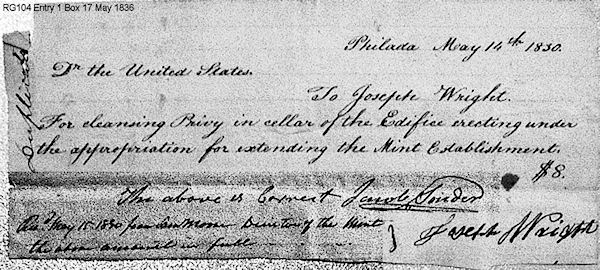 RG104 Entry 1 Box 17 May 1836
Philada May 14th 1830.
Dr the United States.
To Joseph Wright.
For cleansing Privy in cellar of the Edifice erecting under
the appropriation for extending the Mint Establishment.
$8.
Duplicate
The above is Correct Jacob Souder
Recd May 15 1830 from Saml Moore Director of the Mint
the above amount in full
Joseph Wright